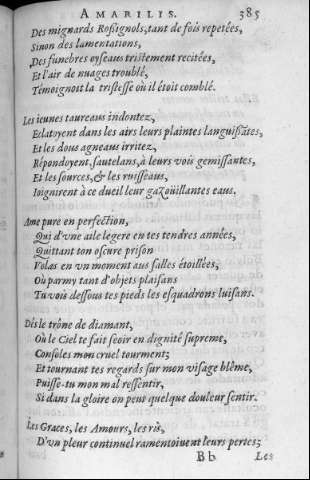 AMARILIS. 385
Des mignards Rossignols, tant de fois repetées,
Sinon des lamentations,
Des funebres oyseaus tristement recitées,
Et l'air de nuages troublé,
Témoignoit la tristesse où il étoit comblé.
Les ieunes taureaus indontez,
Eclatoyent dans les airs leurs plaintes languissãtes,
Et les dous agneaus irritez,
Répondoyent, sautelans, à leurs vois gemissantes,
Et les sources, & les ruisseaus,
Ioignirent à ce dueil leur gazoüillantes eaus.
Ame pure en perfection,
Qui d'vne aile legere en tes tendres années,
Quittant ton oscure prison
Volas en vn moment aus salles étoillées,
Où parmy tant d'objets plaisans
Tu vois dessous tes pieds les esquadrons luisans.
Dés le trône de diamant,
Où le Ciel te fait seoir en dignité supreme,
Consoles mon cruel tourment;
Et tournant tes regards sur mon visage blême,
Puisse-tu mon mal ressentir,
Si dans la gloire on peut quelque douleur sentir.
Les Graces, les Amours, les ris,
D'vn pleur continuel ramentoiuent leurs pertes;
Bb Les